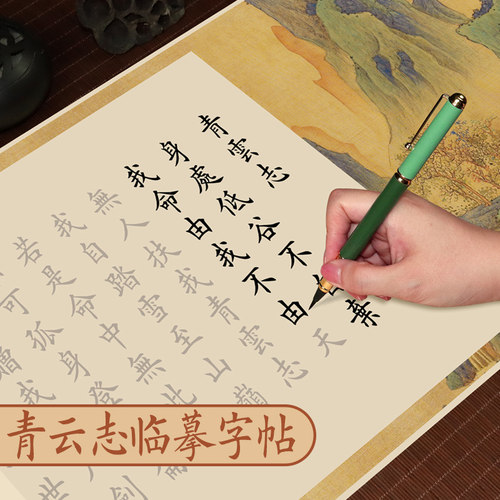 青雲志
身處低谷不自棄
我命由我不由天
無人扶我青雲志
我自踏雪至山巔
若是命中無此
可孤身登
我
青云志临摹字帖